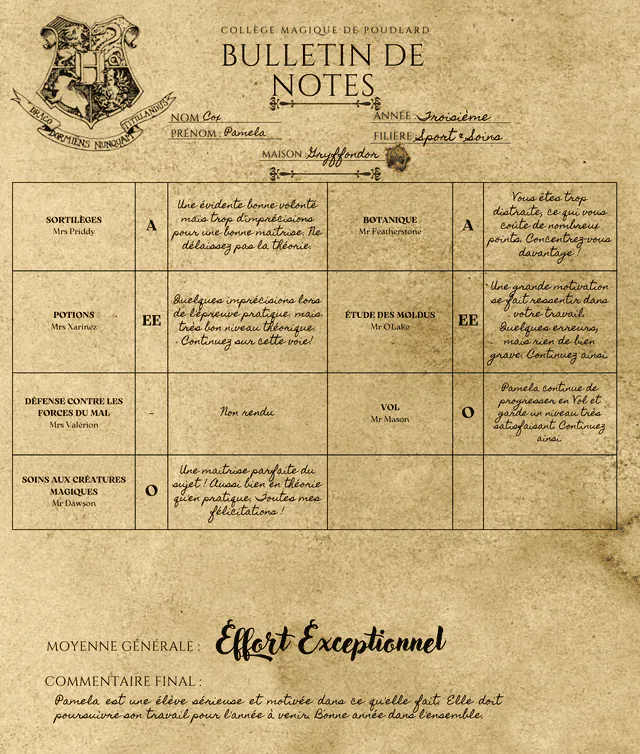 COLLÈGE MAGIQUE DE POUDLARD
BULLETIN DE
NOTES
DRACO
DORMIENS NUNQUAM
TITILLANDUS
NOM Cox
PRÉNOM : Pamela
ANNÉE Troisième
FILIÈRE Sport & Soins
MAISON Gryffondor
SORTILÈGES
Mrs Priddy
A
Une évidente bonne volonté
mais trop d'imprécisions
pour une bonne maîtrise. Ne
délaissez pas la théorie.
BOTANIQUE
Mr Featherstone
A
Vous êtes trop
distraite, ce qui vous
coûte de nombreux
points. Concentrez-vous
davantage !
POTIONS
Mrs Xarinez
EE
Quelques imprécisions lors
de l'épreuve pratique, mais
très bon niveau théorique.
Continuez sur cette voie!
ÉTUDE DES MOLDUS
Mr O'Lake
EE
Une grande motivation
se fait ressentir dans
votre travail.
Quelques erreurs,
mais rien de bien
grave. Continuez ainsi.
DÉFENSE CONTRE LES
FORCES DU MAL
Mrs Valérion
-
Non rendu
VOL
Mr Mason
O
Pamela continue de
progresser en Vol et
garde un niveau très
satisfaisant. Continuez
ainsi.
SOINS AUX CRÉATURES
MAGIQUES
Mr Dawson
O
Une maîtrise parfaite du
sujet ! Aussi bien en théorie
qu'en pratique. Toutes mes
félicitations !
MOYENNE GÉNÉRALE : Effort Exceptionnel
COMMENTAIRE FINAL :
Pamela est une élève sérieuse et motivée dans ce qu'elle fait. Elle doit
poursuivre son travail pour l'année à venir. Bonne année dans l'ensemble.